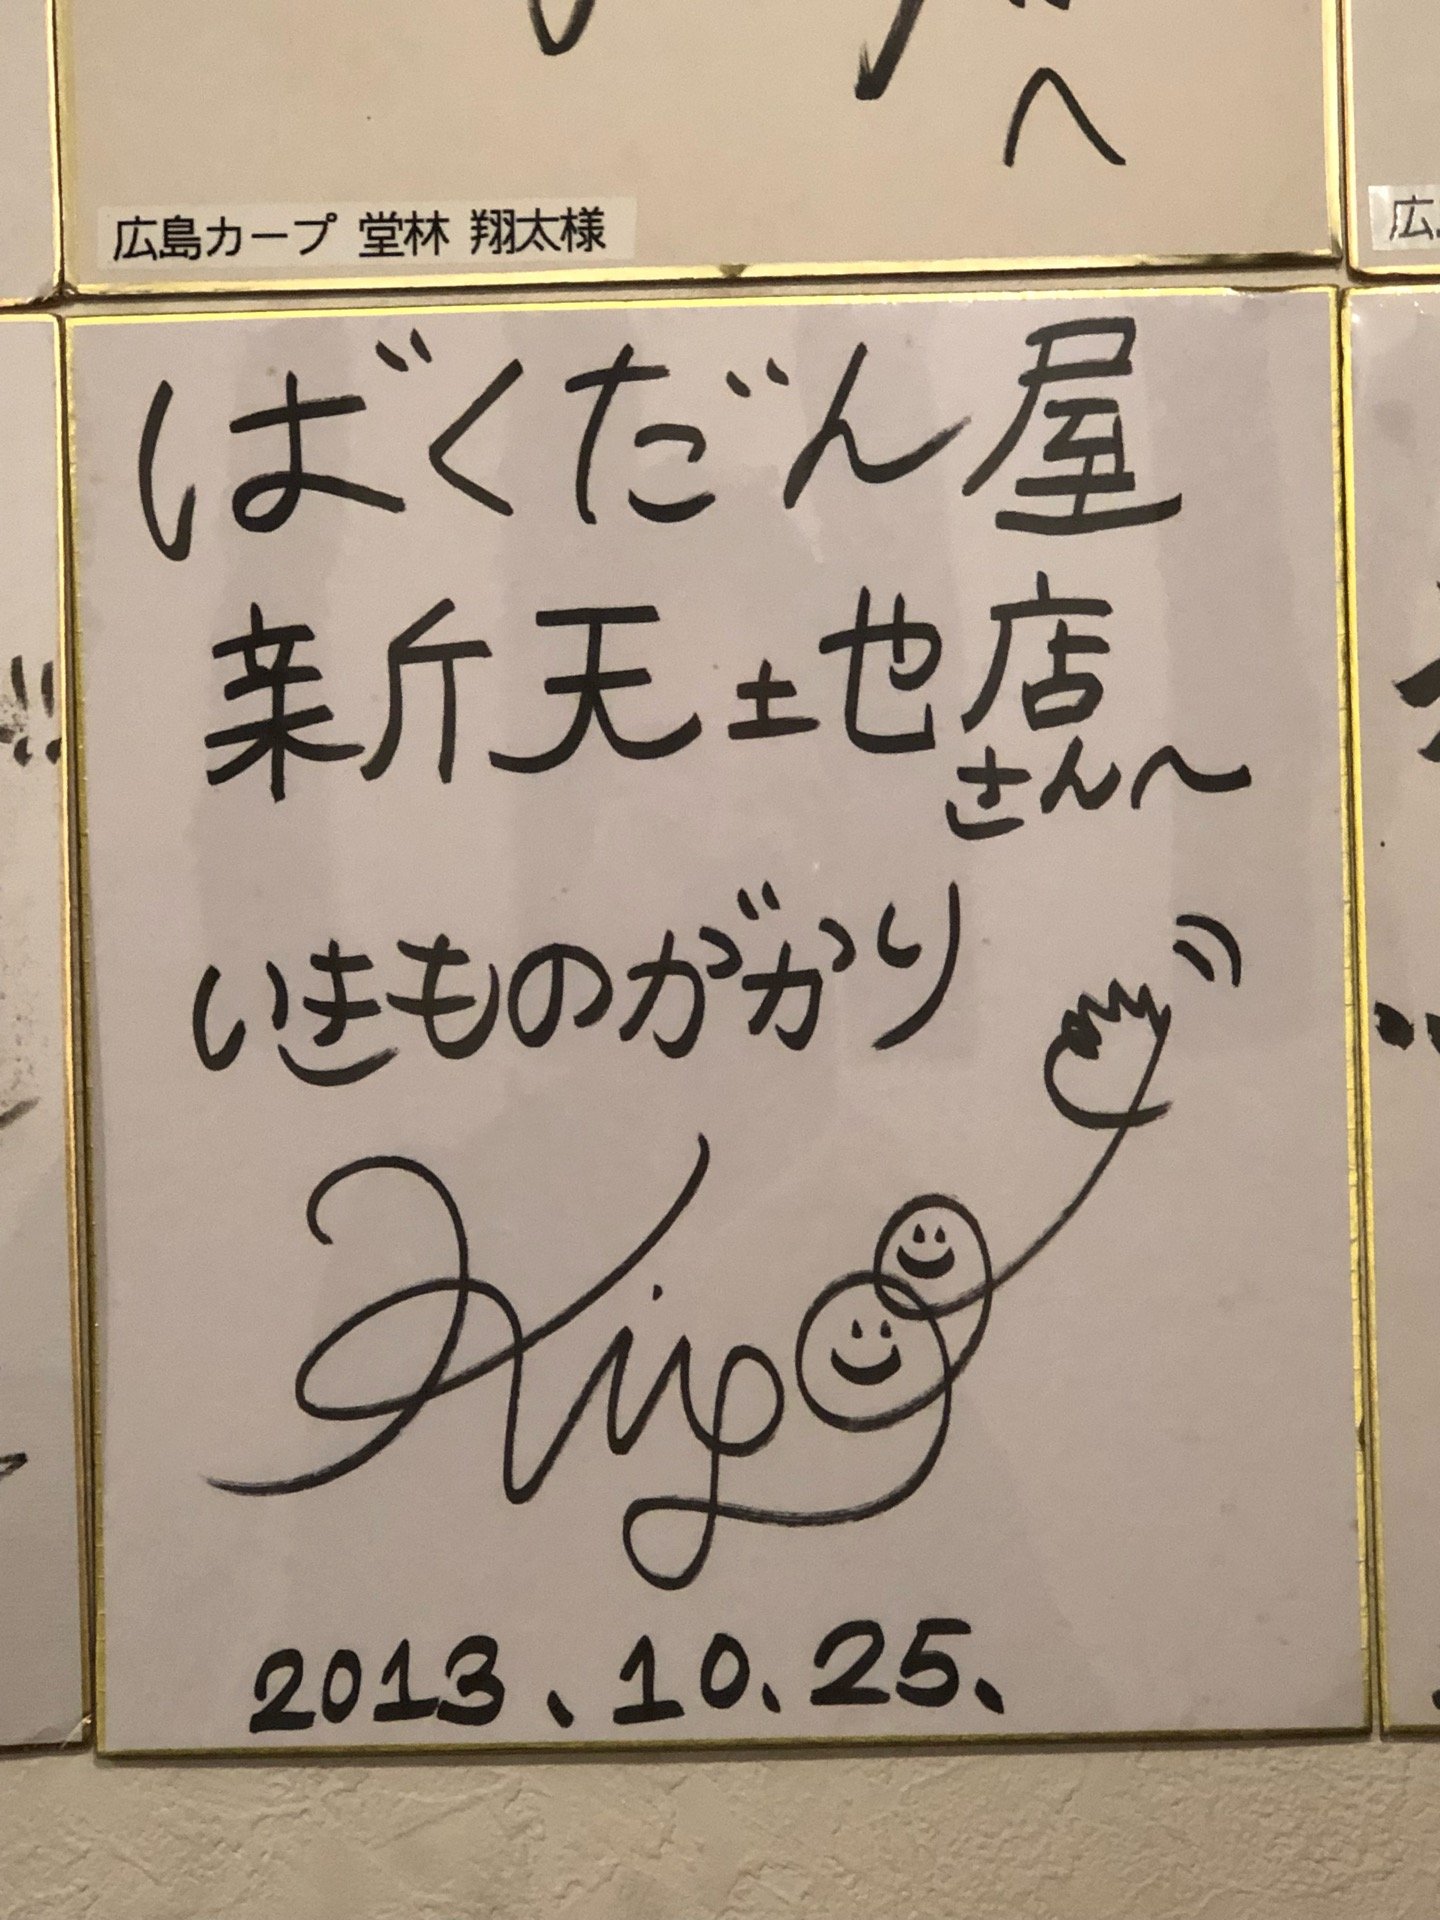 へ
広島カープ 堂林 翔太様
広
ばくだん屋
新天地店
さんへ
いきものがかり
2013.10.25.